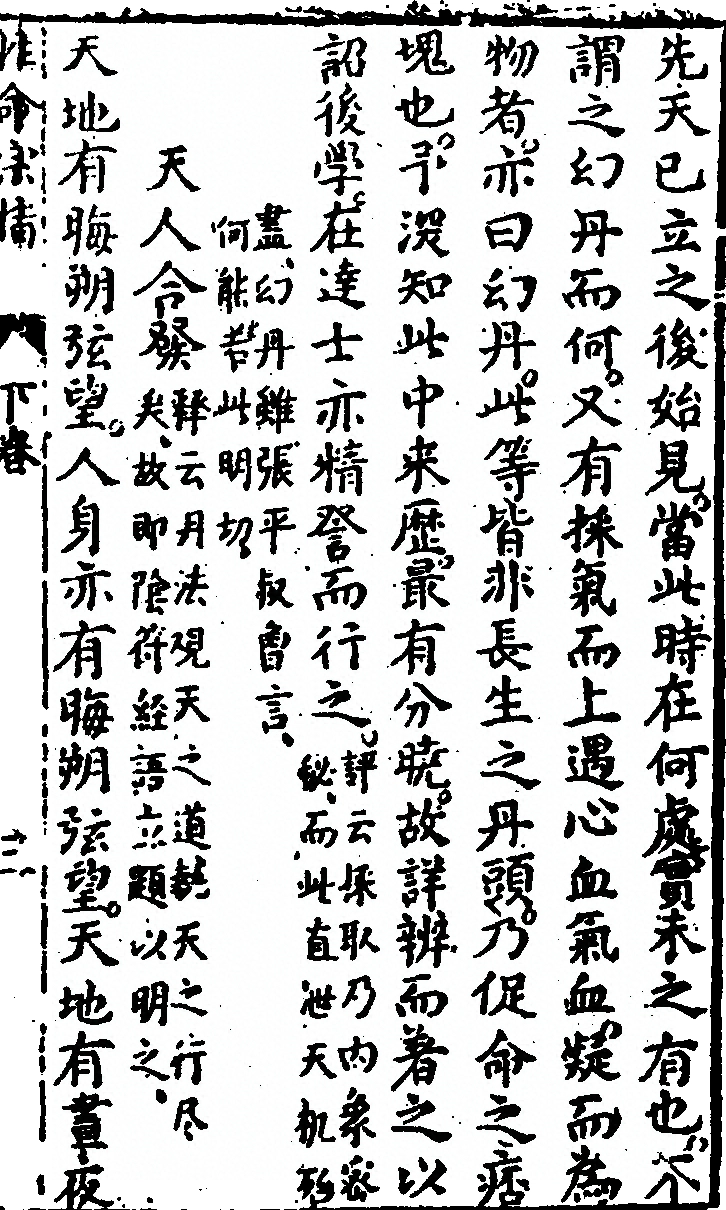 先天已立之後始見當此時在何處實未之有也不
謂之幻丹而何又有採氣而上遇心血氣血凝而為
物者亦曰幻丹此等皆非長生之丹頭乃促命之痞
塊也予深知此中来歷最有分曉故詳辨而著之以
詔後學在達士亦精詧而行之
評云採取乃內藥密
秘而此直泄天机殆
盡幻丹雖張平叔曾言
何能若此明切
天人合發
釋云丹法观天之道執天之行尽
矣故即陰符經語立題以明之
天地有晦朔弦望人身亦有晦朔弦望天地有晝夜
性命宗
下卷